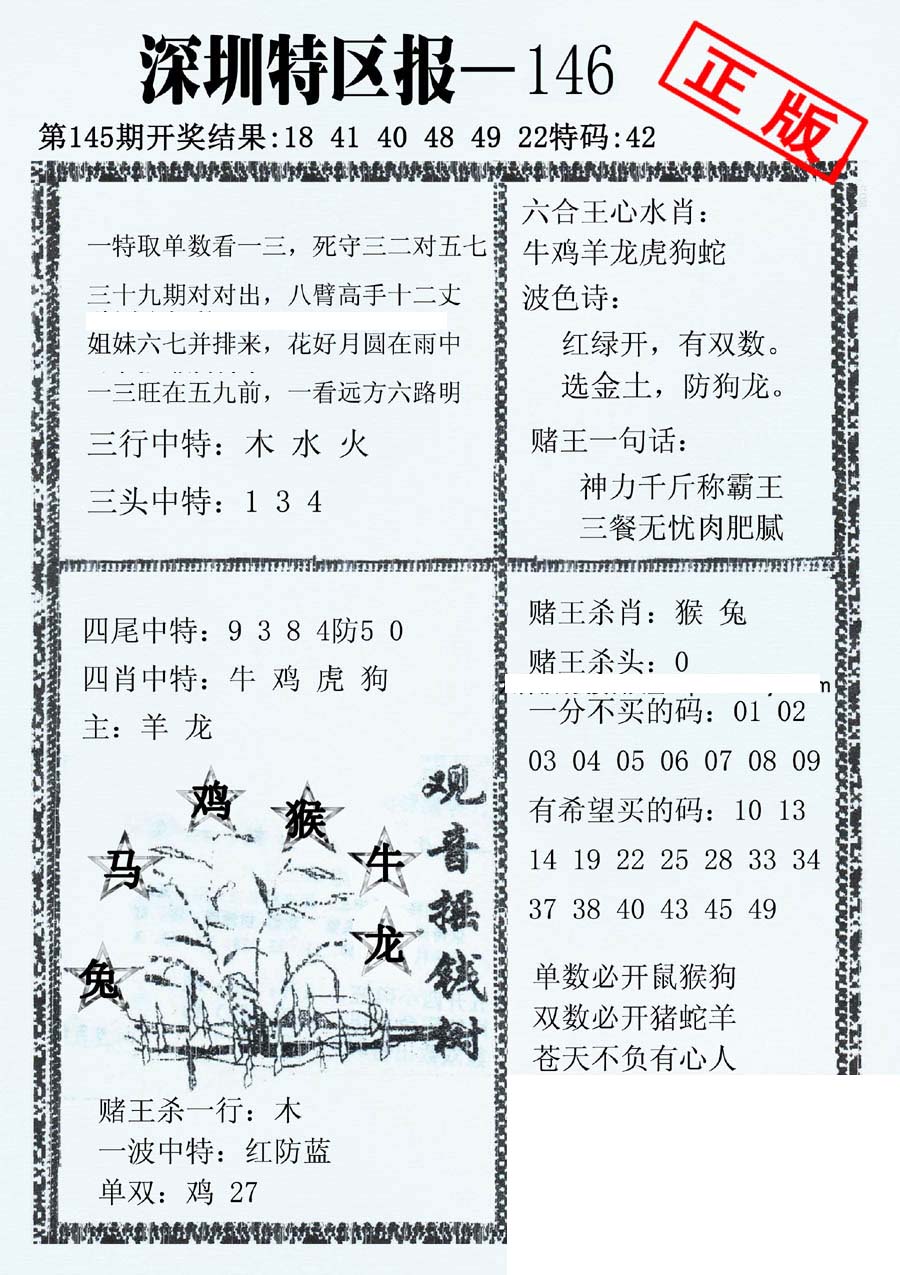 深圳特区报—146
正版
第145期开奖结果:18 41 40 48 49 22特码:42
一特取单数看一三，死守三二对五七
三十九期对对出，八臂高手十二丈
姐妹六七并排来，花好月圆在雨中
一三旺在五九前，一看远方六路明
三行中特：木 水 火
三头中特：1 3 4
六合王心水肖：
牛鸡羊龙虎狗蛇
波色诗：
红绿开，有双数。
选金土，防狗龙。
赌王一句话：
神力千斤称霸王
三餐无忧肉肥腻
四尾中特：9 3 8 4防5 0
四肖中特：牛 鸡 虎 狗
主：羊 龙
鸡
猴
马
牛
龙
兔
观音摇钱树
赌王杀一行：木
一波中特：红防蓝
单双：鸡 27
赌王杀肖：猴 兔
赌王杀头：0
一分不买的码：01 02
03 04 05 06 07 08 09
有希望买的码：10 13
14 19 22 25 28 33 34
37 38 40 43 45 49
单数必开鼠猴狗
双数必开猪蛇羊
苍天不负有心人